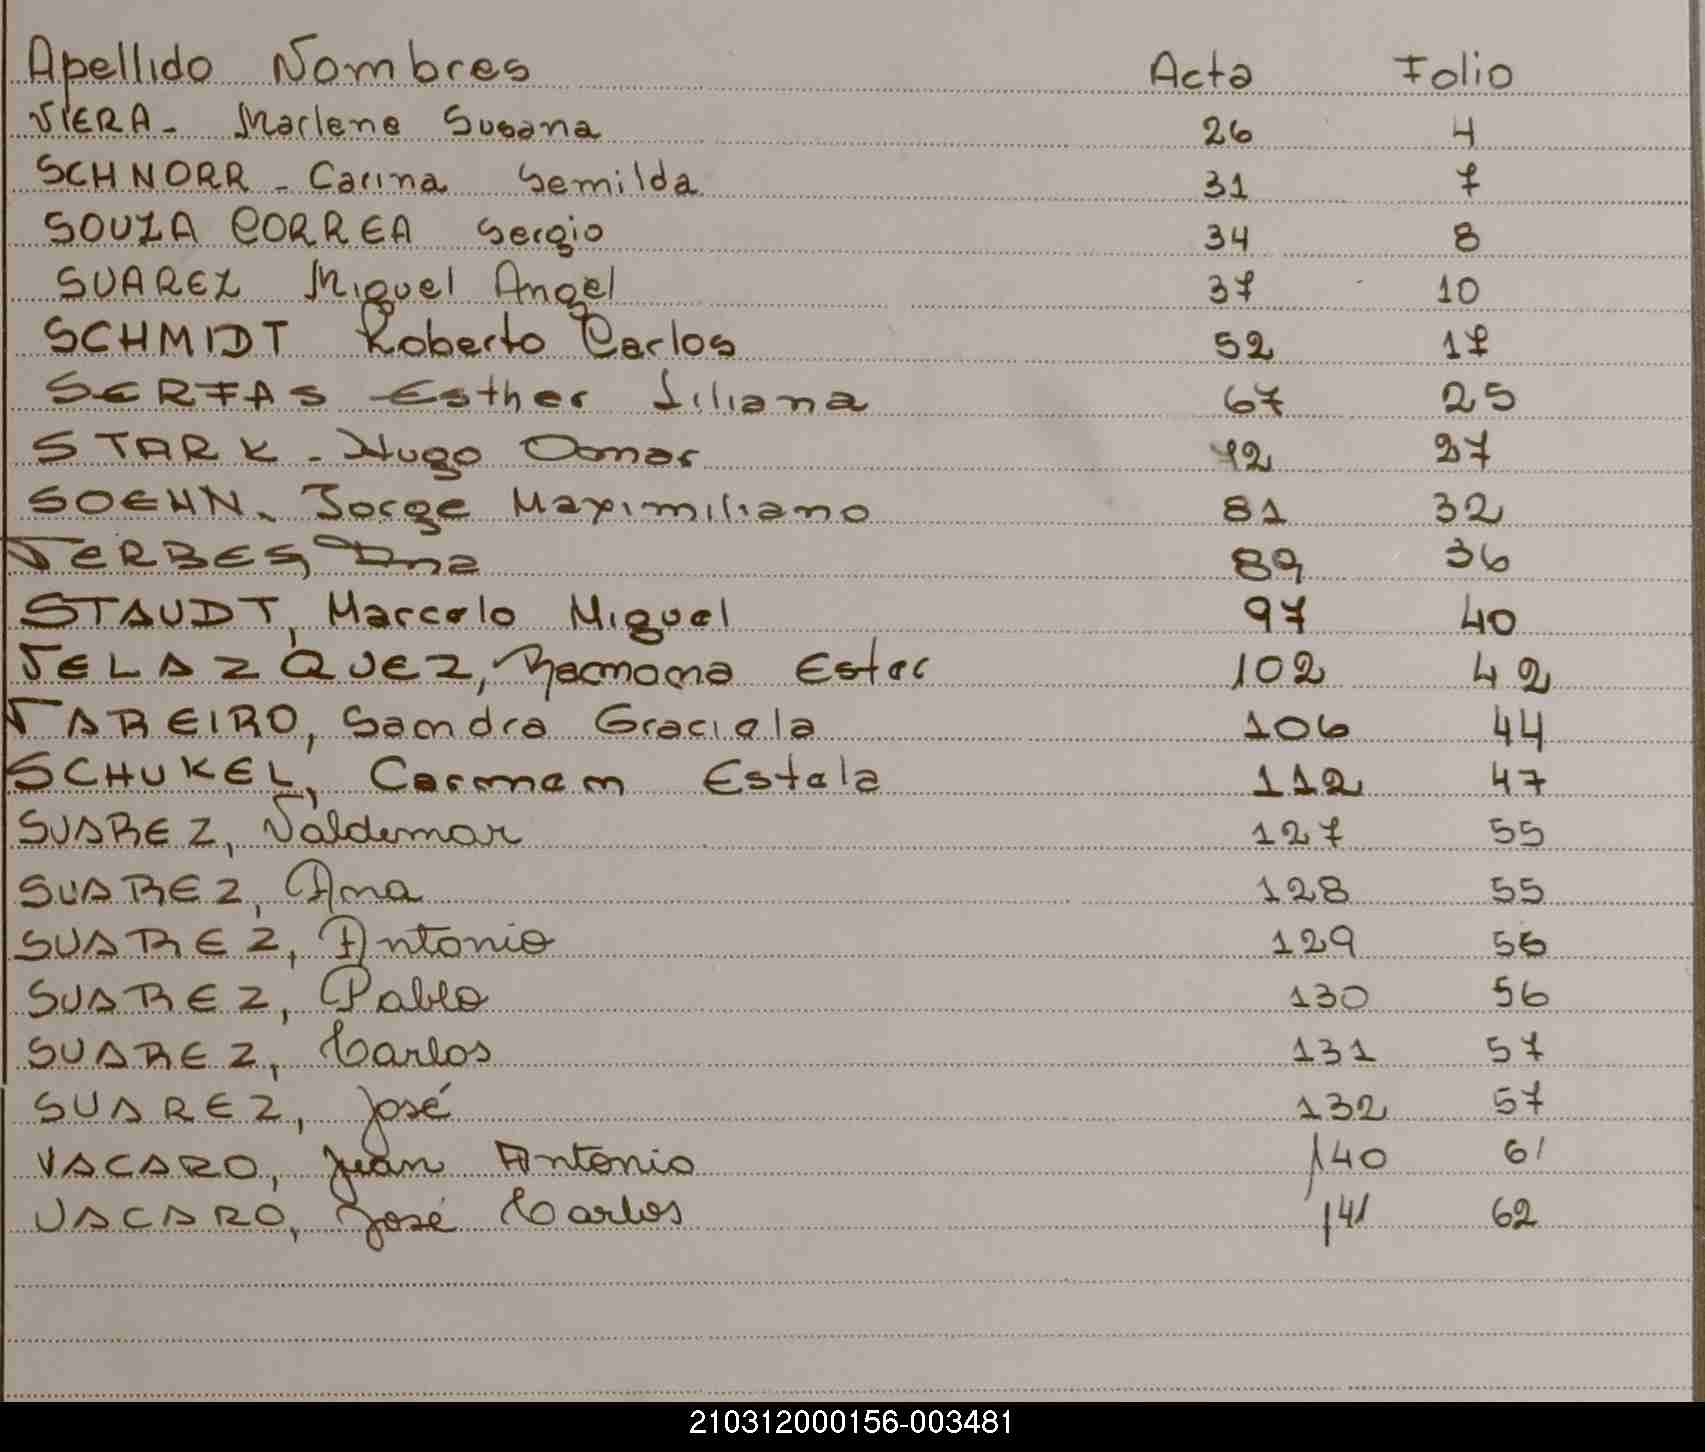 Apellido Nombres Acta Folio
VIERA - Marlene Susana 26 4
SCHNORR - Carina Semilda 31 7
SOUZA CORREA Sergio 34 8
SUAREZ Miguel Angel 37 10
SCHMIDT Roberto Carlos 52 17
SERFAS Esther Liliana 67 25
STARK - Hugo Omar 72 27
SOEHN - Jorge Maximiliano 81 32
VERBES, Ana 89 36
STAUDT, Marcelo Miguel 97 40
VELAZQUEZ, Ramona Ester 102 42
TAREIRO, Sandra Graciela 106 44
SCHUKEL, Carmen Estela 112 47
SUAREZ, Valdemar 127 55
SUAREZ, Ana 128 55
SUAREZ, Antonio 129 56
SUAREZ, Pablo 130 56
SUAREZ, Carlos 131 57
SUAREZ, José 132 57
VACARO, Juan Antonio 140 61
VACARO, José Carlos 141 62
210312000156-003481